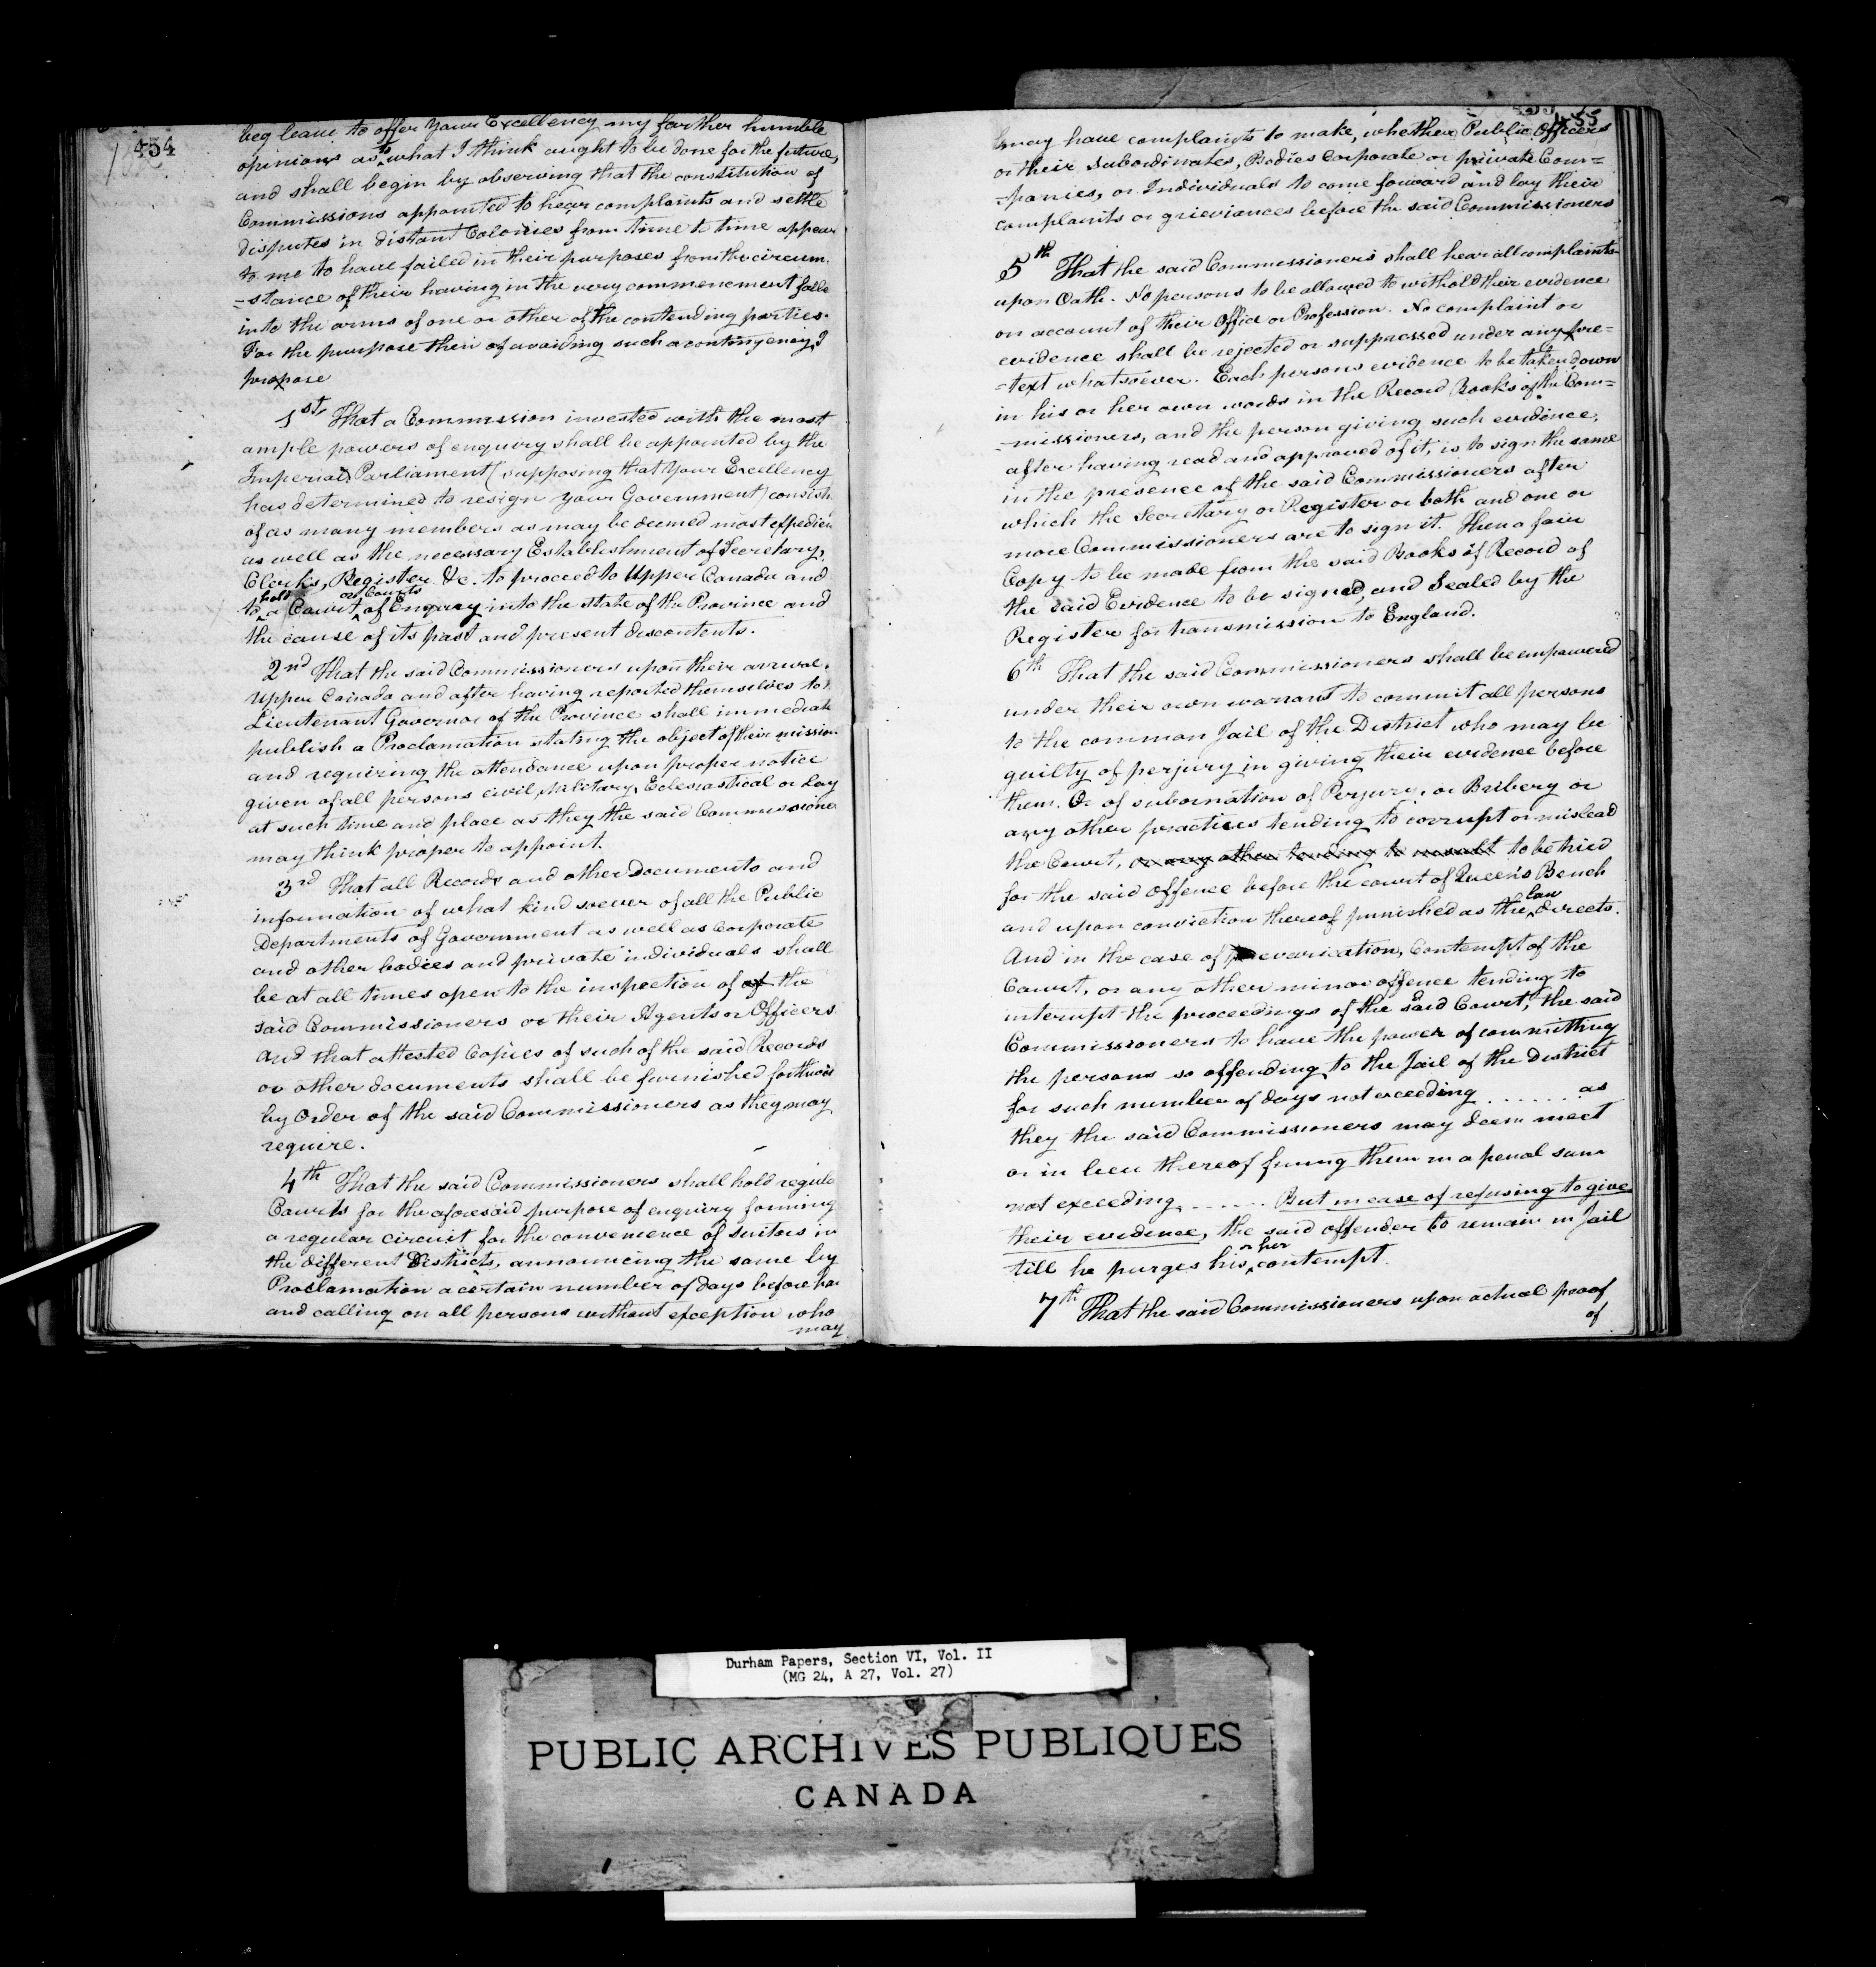 454
beg leave to offer Your Excellency my farther humble
opinions as to what I think ought to be done for the future,
and shall begin by observing that the constitution of
Commissions appointed to hear complaints and settle
disputes in distant Colonies from time to time appear
to me to have failed in their purposes from the circum
-stance of their having in the very commencement falle
into the arms of one or other of the contending parties.
For the purpose then of avoiding such a contingency I
propose
1st, That a Commission invested with the most
ample powers of enquiry shall be appointed by the
Imperial Parliament (supposing that Your Excellency
has determined to resign your Government) consist.
of as many members as may be deemed most expedien
as well as the necessary Establishment of Secretary,
Clerks, Register &c. to proceed to Upper Canada and
to hold a Court or Courts of Enquiry into the state of the Province and
the cause of its past and present discontents.
2nd That the said Commissioners upon their arrival
Upper Canada and after having reported themselves to
Lieutenant Governor of the Province shall immediate
publish a Proclamation stating the object of their mission
and requiring the attendance upon proper notice
given of all persons civil, Military, Eclesiastical or Lay
at such time and place as they the said Commissione
may think proper to appoint.
3rd That all Records and other Documents and
information of what kind soever of all the Public
Departments of Government as well as Corporate
and other bodies and private individuals shall
be at all times open to the inspection of of the
said Commissioners or their Agents or Officers
and that attested Copies of such of the said Records
or other documents shall be furnished forthwi
by Order of the said Commissioners as they may
require.
4th That the said Commissioners shall hold regula
Courts for the aforesaid purpose of enquiry forming
a regular circuit for the convenience of Suitors in
the different Districts, announcing the same by
Proclamation a certain number of days before ha
and calling on all persons without exception who
may
455
may have complaints to make, whether Public Officers
or their Subordinates, Bodies Corporate or private Com=
-panies, or Individuals to come forward and lay their
complaints or grieviances before the said Commissioners
5th That the said Commissioners shall hear all complaints
upon Oath. No persons to be allowed to withold their evidence
on account of their Office or Profession. No complaint or
evidence shall be rejected or suppressed under any pre=
=text whatsoever. Each persons evidence to be taken down
in his or her own words in the Record Books of the Com=
-missioners, and the person giving such evidence,
after having read and approved of it, is to sign the same
in the presence of the said Commissioners after
which the Secretary or Register or both and one or
more Commissioners are to sign it. Then a fair
Copy to be made from the said Books of Record of
the said Evidence to be signed, and Sealed by the
Register for transmission to England.
6th That the said Commissioners shall be empowered
under their own warrant to commit all persons
to the common Jail of the District who may be
guilty of perjury in giving their evidence before
them. Or of subornation of Perjury, or Bribery or
any other practices tending to corrupt or mislead
the Court, or any other tending to insult to be tried
for the said offence before the court of Queen's Bench
and upon conviction thereof punished as the Law directs.
And in the case of prevarication, Contempt of the
Court, or any other minor offence tending to
interrupt the proceedings of the said Court, the said
Commissioners to have the power of committing
the persons so offending to the Jail of the District
for such number of days not exceeding ....... as
they the said Commissioners may deem meet
or in lieu thereof fining them in a penal sum
not exceeding ...... But in case of refusing to give
their evidence, the said offender to remain in Jail
till he purges his or her contempt.
7th That the said Commissioners upon actual proof
of
Durham Papers, Section VI, Vol. II
(MG 24, A 27, Vol. 27)
PUBLIC ARCHIVES PUBLIQUES
CANADA